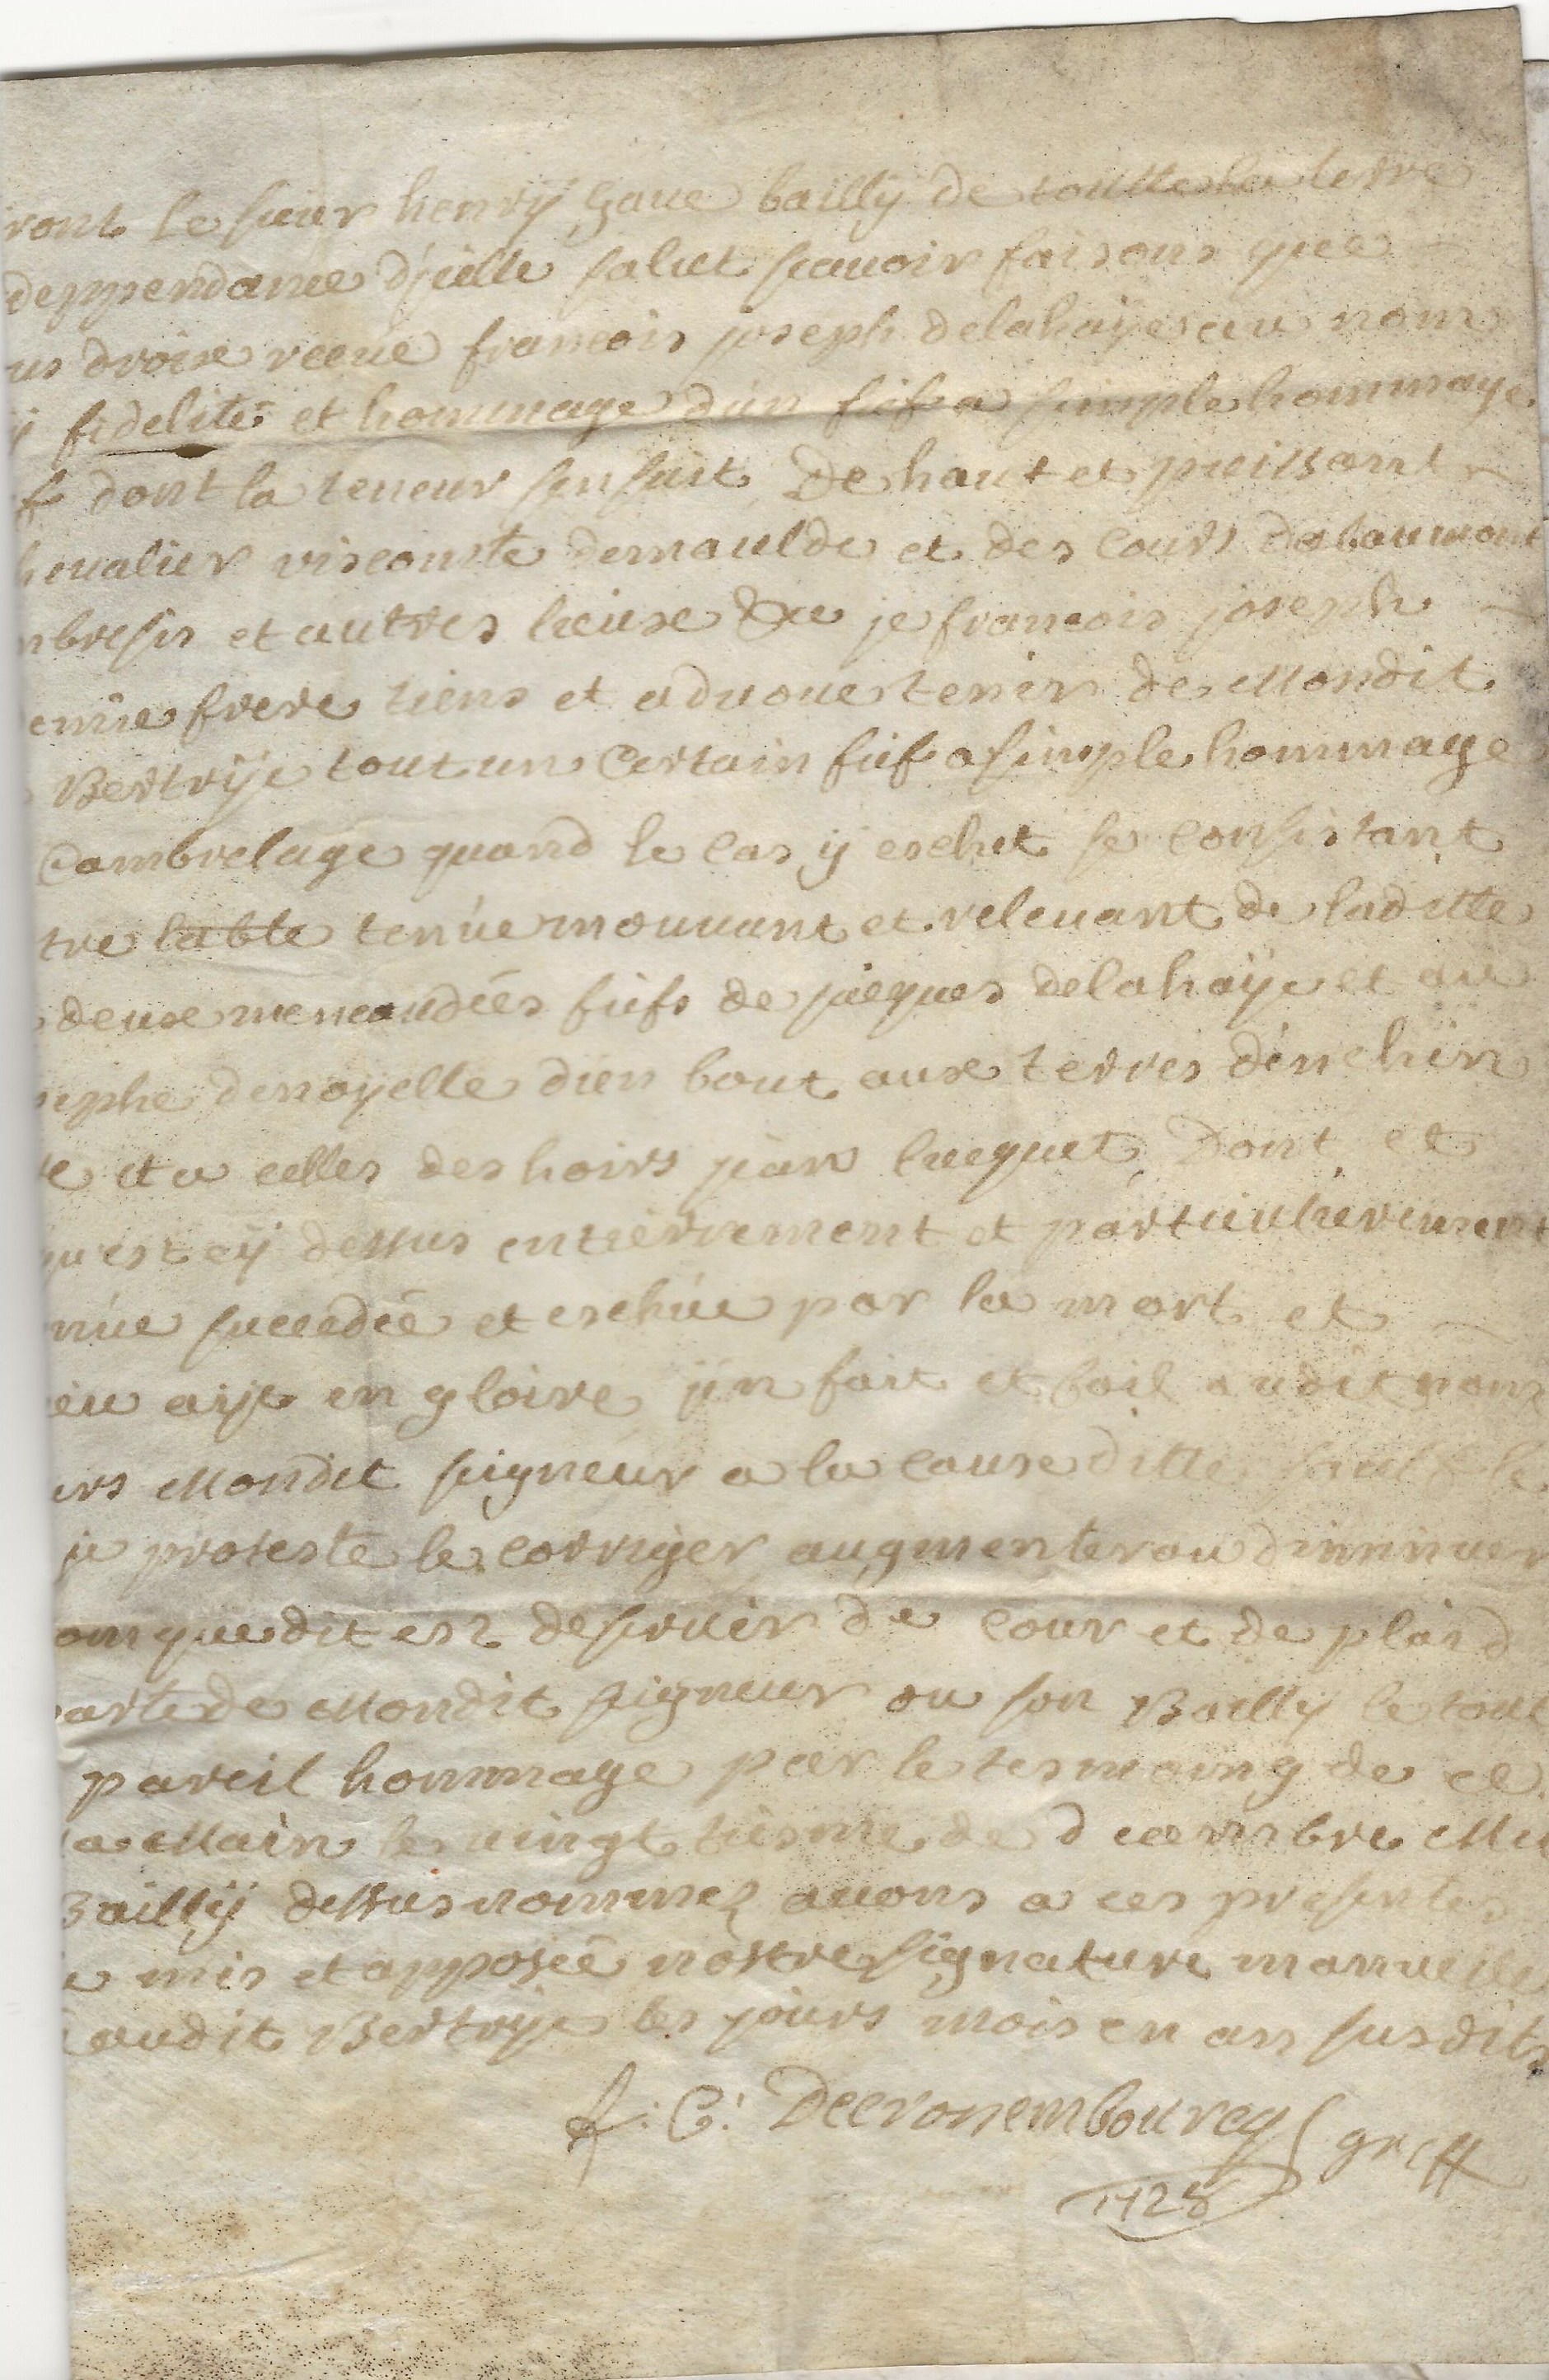 ront le sieur henrÿ gaue baillÿ de toutte la terre
deppendance d'jcelle salut scauoir faisons que
us droixe receue francois joseph delahaÿe au nom
ÿ fidelité et hommage d'un fief a simple hommage
f dont la teneur sensuit De haut et puissant
heualier viscomte demaulde et des cours
nbresis et autres lieuxe &ce je francois joseph
frere tiens et aduoue tenir de Mondit
Bertrÿe tout un certain fief a simple hommage
Cambrelage quand le cas ÿ eschet se consistant
tre lable tenüe mouuant et releuant de laditte
deuxe mencaudées fiefs de jacques delahaÿe et au
sephe denoyelle d'un bout auxe terres d'inchin
e et a celles des hoirs jean lucquet Dont et
qu'est cÿ dessus entierrement et particulierement
nüe succedée et eschüe par la mort et
ieu aÿt en gloire jen fait et bail audit nom
ers Mondit seigneur a la cause ditte sauf le
je proteste le corriger augmenter ou diminuer
om que dit est deseruir de cour et de plaid
parte de Mondit seigneur ou son Baillÿ le tout
pareil hommage par le tesmoing de ce
a Main le vingt tiesme de decembre Mil
Baillÿ dessus nommez auons a ces presentes
e mis et apposée nostre signature manuelle
audit Bertrÿe les jours mois en an susdits
f: C: Decronembourcq greff
1728